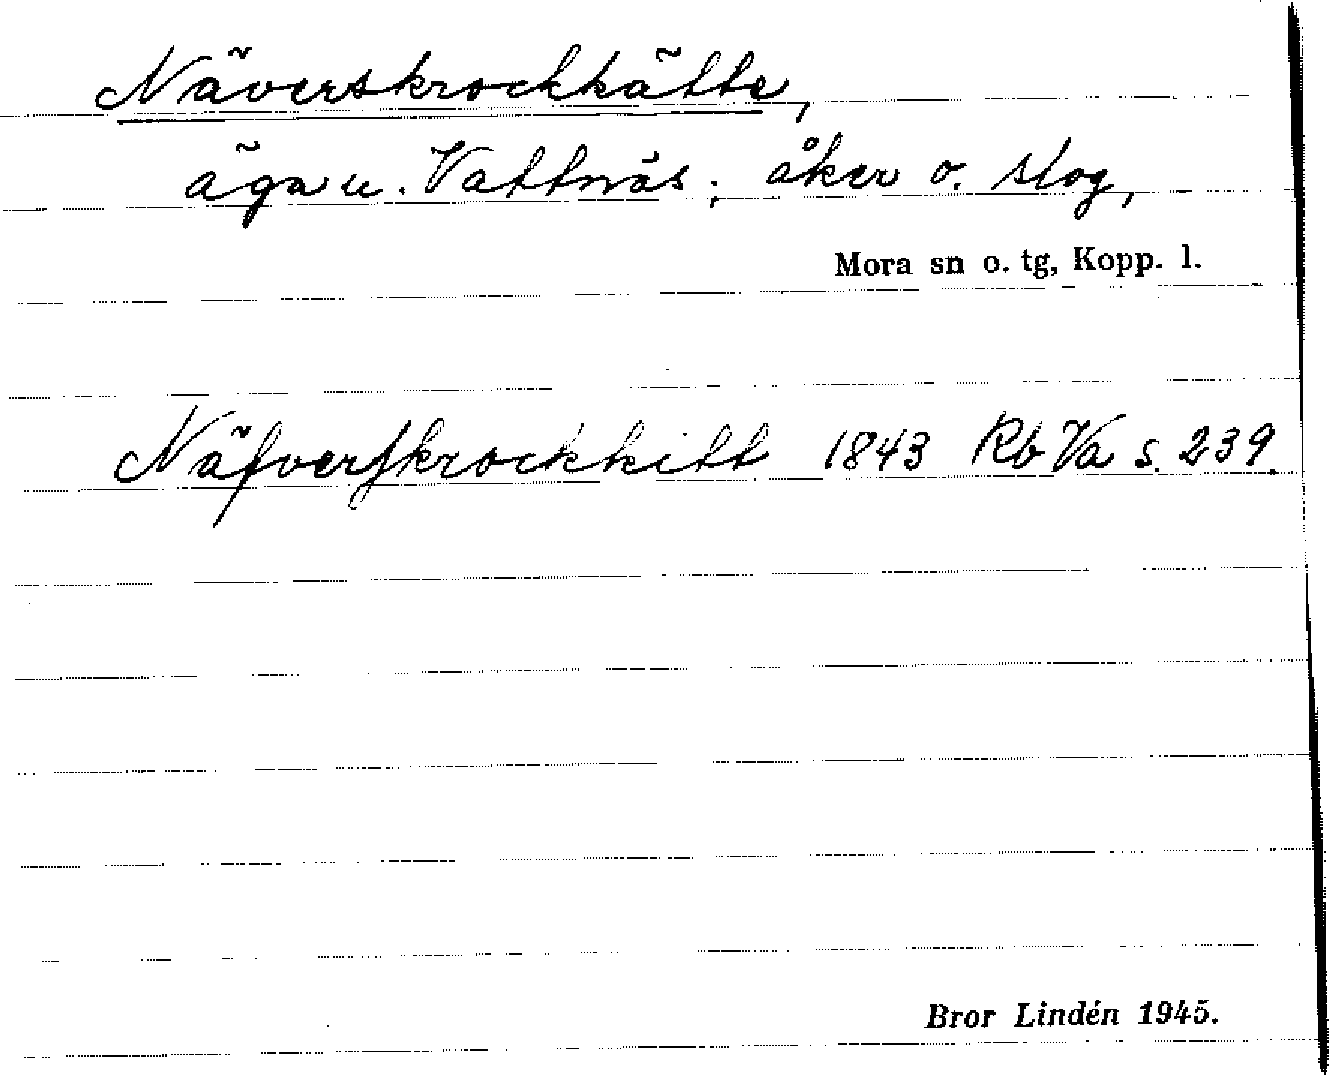 Näverskrockkätte,
äga u. Vattnäs; åker o. slog,
Mora sn o. tg, Kopp. l.
Näfverskrockkitt 1843 Rb Va s. 239.
Bror Lindén 1945.